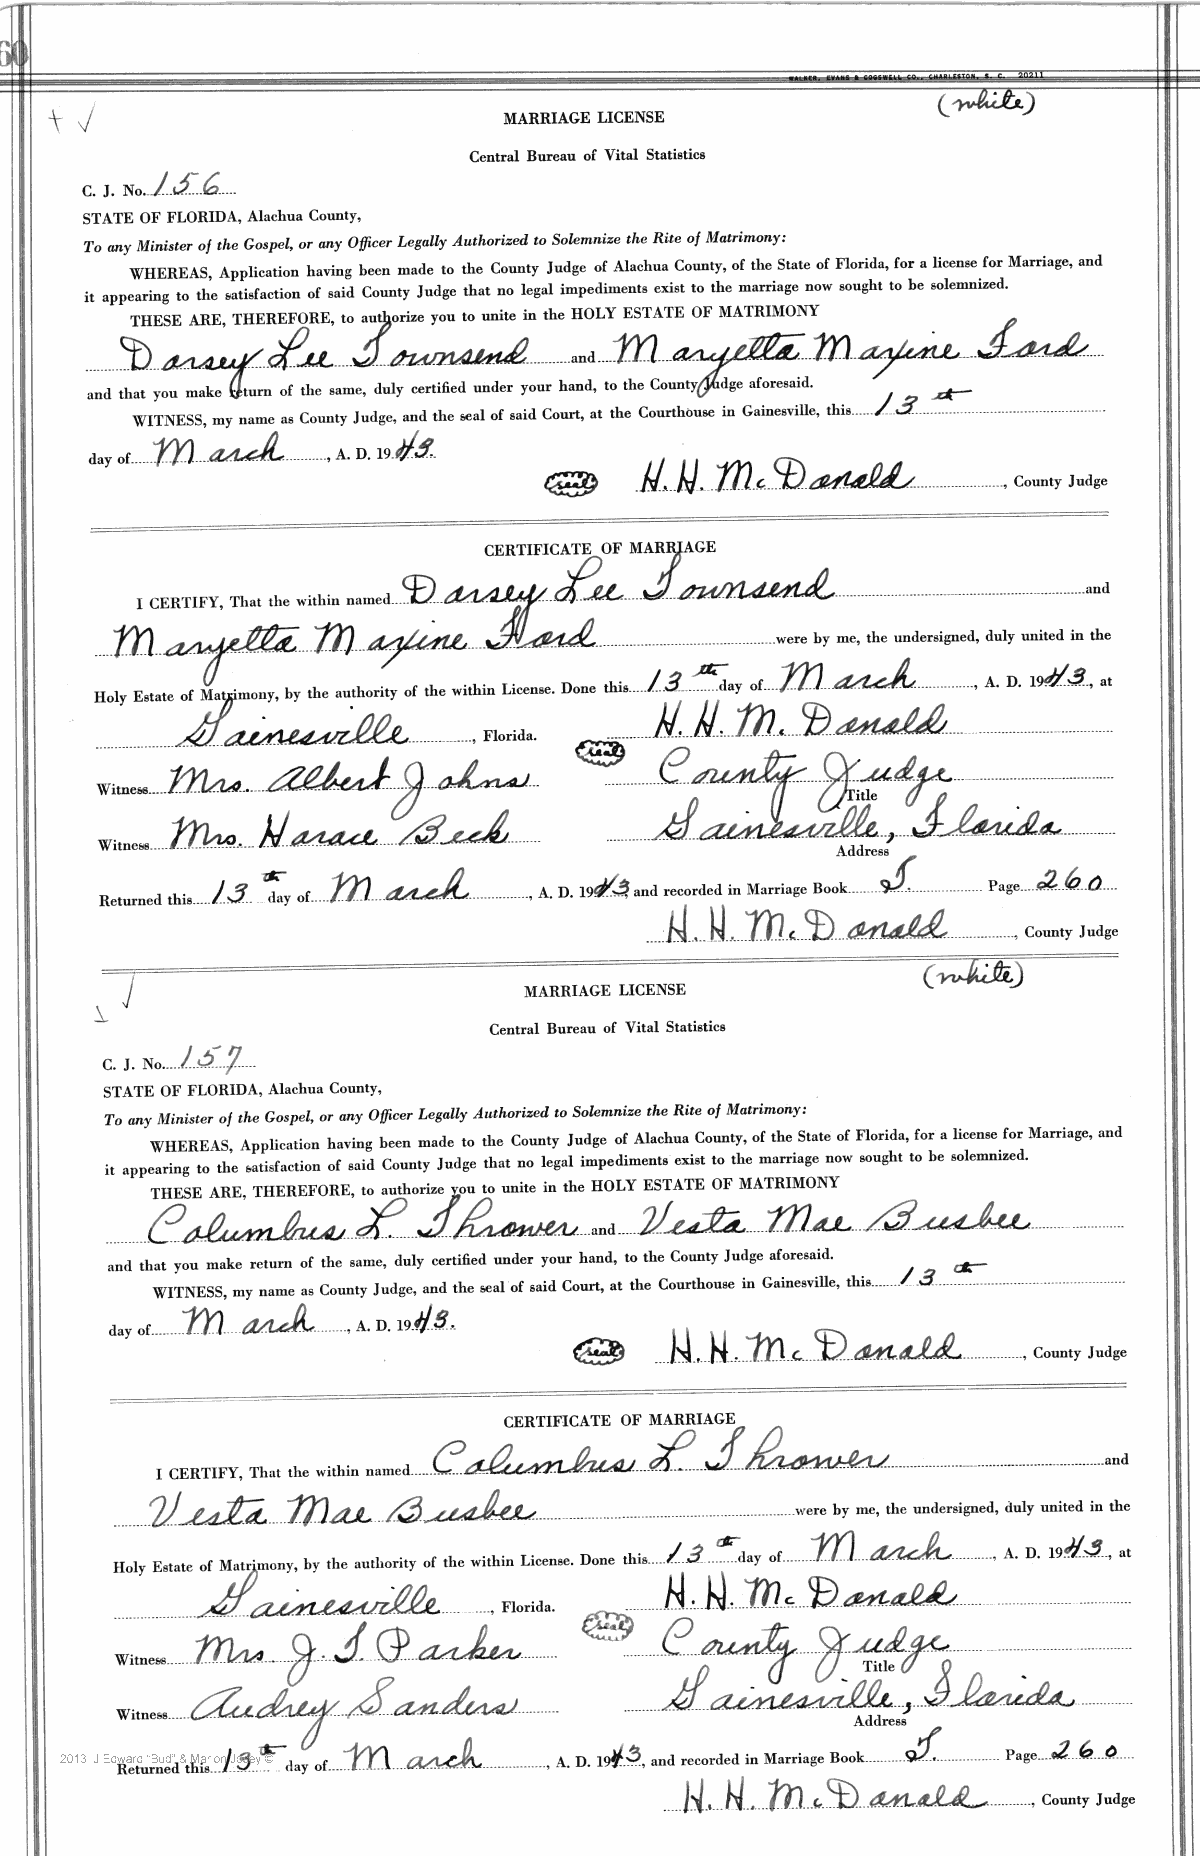 60
WALKER, EVANS & COGSWELL CO., CHARLESTON, S. C. 20211
(white)
+ ✓
MARRIAGE LICENSE
Central Bureau of Vital Statistics
C. J. No. 156
STATE OF FLORIDA, Alachua County,
To any Minister of the Gospel, or any Officer Legally Authorized to Solemnize the Rite of Matrimony:
WHEREAS, Application having been made to the County Judge of Alachua County, of the State of Florida, for a license for Marriage, and
it appearing to the satisfaction of said County Judge that no legal impediments exist to the marriage now sought to be solemnized.
THESE ARE, THEREFORE, to authorize you to unite in the HOLY ESTATE OF MATRIMONY
Dorsey Lee Townsend and Maryetta Maxine Ford
and that you make return of the same, duly certified under your hand, to the County Judge aforesaid.
WITNESS, my name as County Judge, and the seal of said Court, at the Courthouse in Gainesville, this 13th
day of March, A. D. 1943.
(seal) H. H. McDonald, County Judge
CERTIFICATE OF MARRIAGE
I CERTIFY, That the within named Dorsey Lee Townsend and
Maryetta Maxine Ford were by me, the undersigned, duly united in the
Holy Estate of Matrimony, by the authority of the within License. Done this 13th day of March, A. D. 1943, at
Gainesville, Florida. H. H. McDonald
(seal)
Witness Mrs. Albert Johns County Judge
Title
Witness Mrs. Horace Beck Gainesville, Florida
Address
Returned this 13th day of March, A. D. 1943, and recorded in Marriage Book T. Page 260
H. H. McDonald, County Judge
(white)
✓
MARRIAGE LICENSE
Central Bureau of Vital Statistics
C. J. No. 157
STATE OF FLORIDA, Alachua County,
To any Minister of the Gospel, or any Officer Legally Authorized to Solemnize the Rite of Matrimony:
WHEREAS, Application having been made to the County Judge of Alachua County, of the State of Florida, for a license for Marriage, and
it appearing to the satisfaction of said County Judge that no legal impediments exist to the marriage now sought to be solemnized.
THESE ARE, THEREFORE, to authorize you to unite in the HOLY ESTATE OF MATRIMONY
Columbus L. Thrower and Vesta Mae Busbee
and that you make return of the same, duly certified under your hand, to the County Judge aforesaid.
WITNESS, my name as County Judge, and the seal of said Court, at the Courthouse in Gainesville, this 13th
day of March, A. D. 1943.
(seal) H. H. McDonald, County Judge
CERTIFICATE OF MARRIAGE
I CERTIFY, That the within named Columbus L. Thrower and
Vesta Mae Busbee were by me, the undersigned, duly united in the
Holy Estate of Matrimony, by the authority of the within License. Done this 13th day of March, A. D. 1943, at
Gainesville, Florida. H. H. McDonald
(seal)
Witness Mrs. J. T. Parker County Judge
Title
Witness Audrey Sanders Gainesville, Florida
Address
2013 J Edward "Bud" & Marion ©
Returned this 13th day of March, A. D. 1943, and recorded in Marriage Book T. Page 260
H. H. McDonald, County Judge